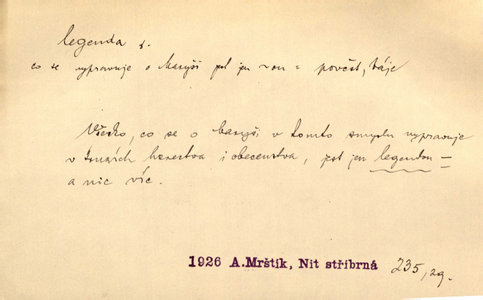 legenda f.
co se vypravuje o Maryši jest jen = pověst, báje
Všecko, co se o Maryši v tomto smyslu vypravuje
v tmách herectva i obecenstva, jest jen legendou —
a nic víc.
1926 A.Mrštík, Nit stříbrná 235, 29.